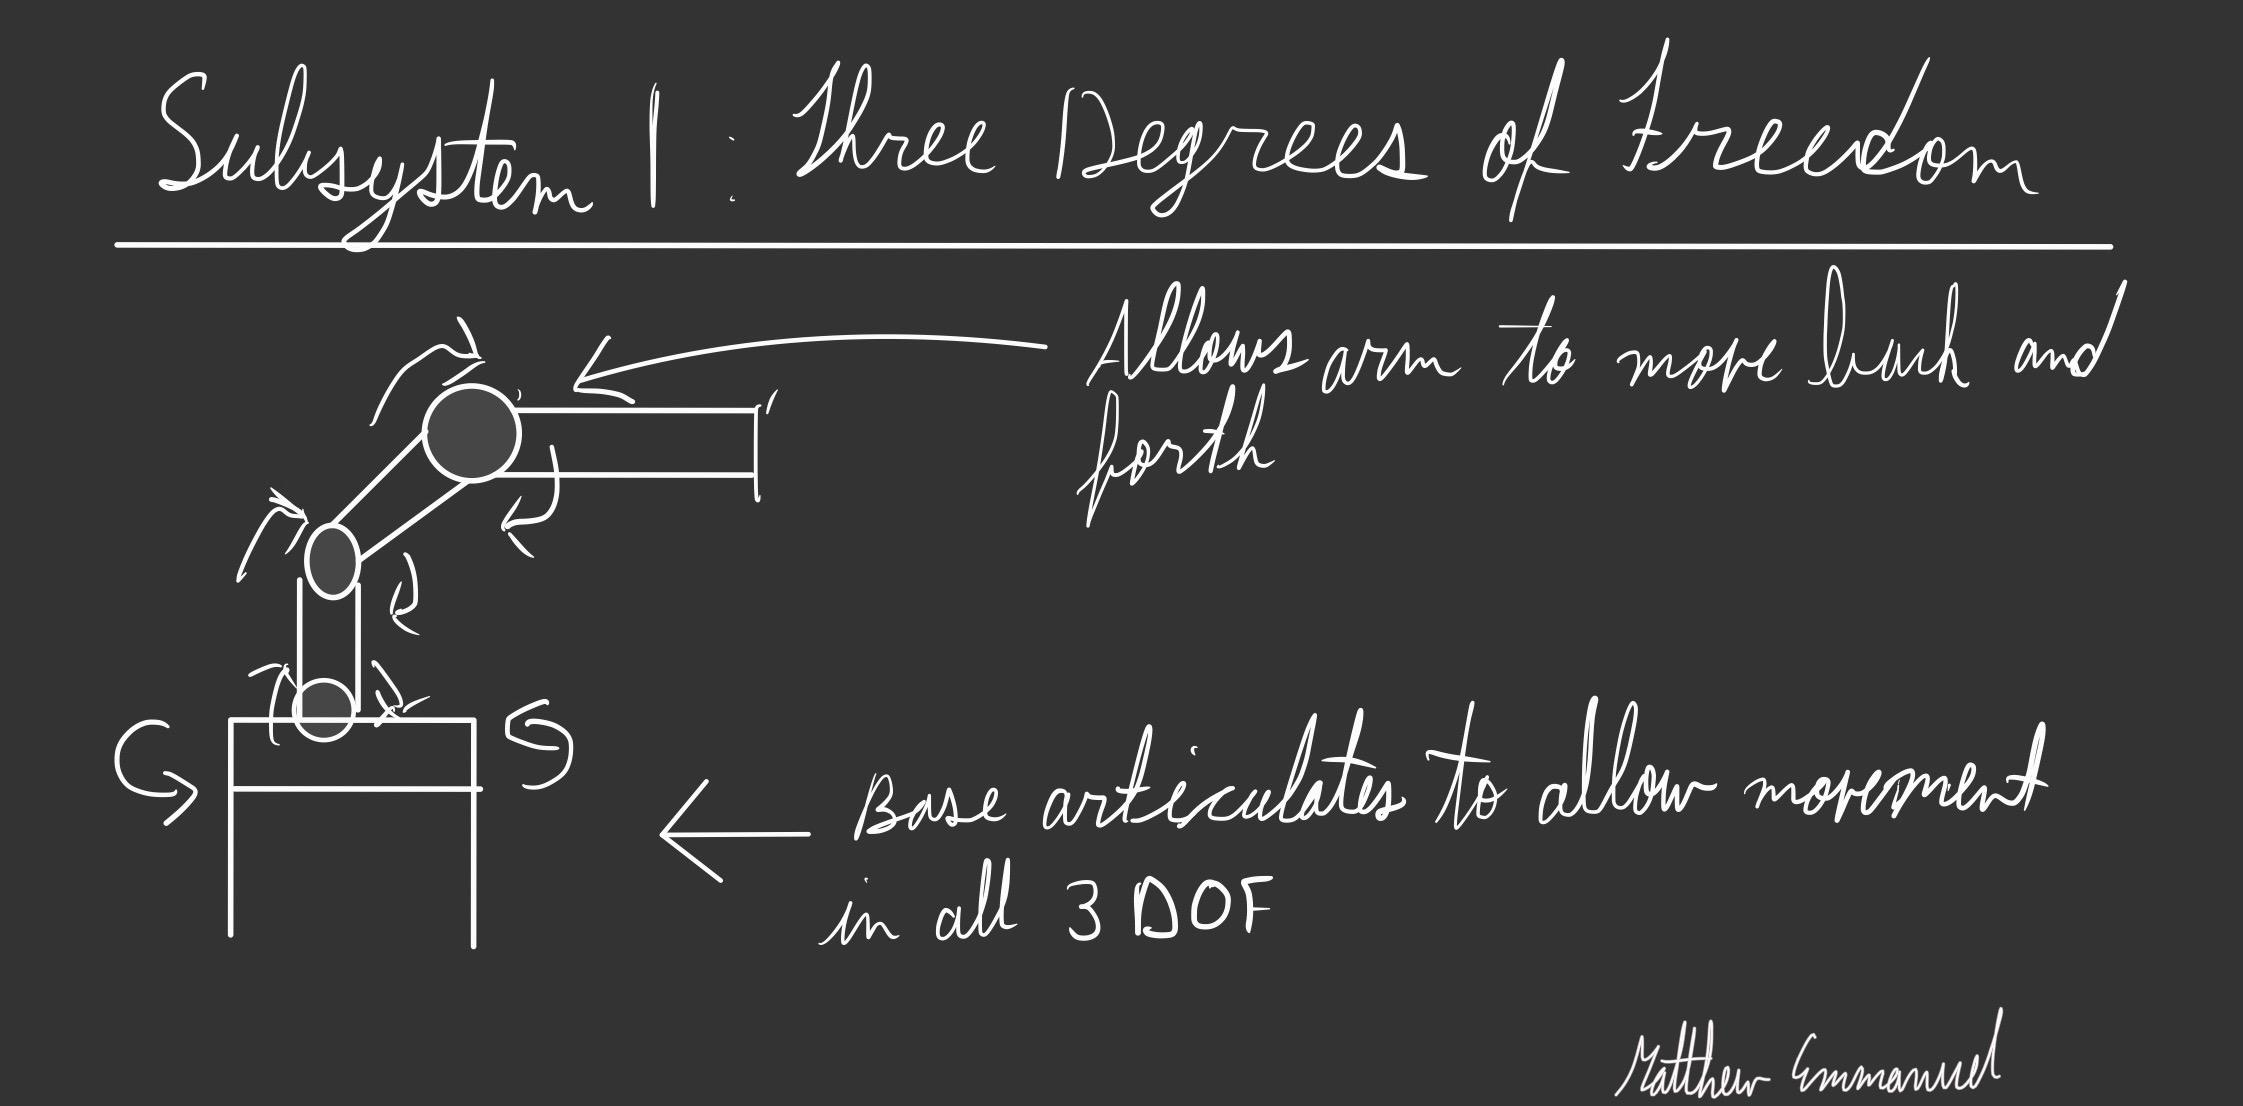 Subsystem 1: Three Degrees of Freedom
Allows arm to move back and
forth
Base articulates to allow movement
in all 3 DOF
Matthew Emmanuel